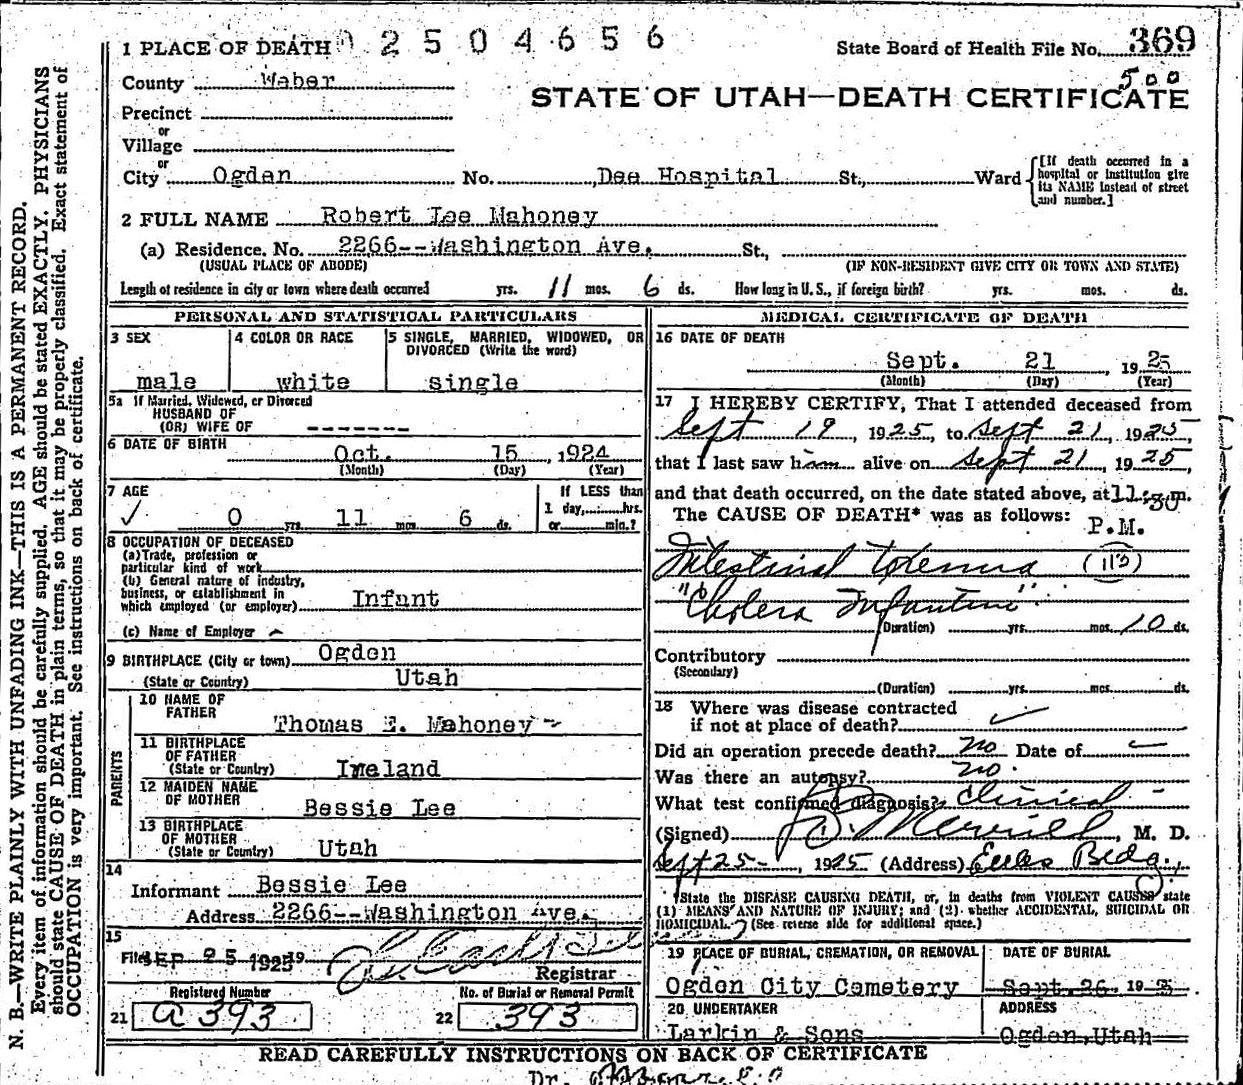 1 PLACE OF DEATH 0 2 5 0 4 6 5 6 State Board of Health File No. 369
500
County Weber
STATE OF UTAH—DEATH CERTIFICATE
Precinct
or
Village
or
City Ogden No. ,Dee Hospital St., Ward {[If death occurred in a hospital or institution give its NAME instead of street and number.]
2 FULL NAME Robert Lee Mahoney
(a) Residence. No. 2266--Washington Ave. St.,
(USUAL PLACE OF ABODE) (IF NON-RESIDENT GIVE CITY OR TOWN AND STATE)
Length of residence in city or town where death occurred yrs. 11 mos. 6 ds. How long in U. S., if foreign birth? yrs. mos. ds.
PERSONAL AND STATISTICAL PARTICULARS
3 SEX
male
4 COLOR OR RACE
white
5 SINGLE, MARRIED, WIDOWED, OR
DIVORCED (Write the word)
single
5a If Married, Widowed, or Divorced
HUSBAND OF
(OR) WIFE OF -------
6 DATE OF BIRTH
Oct. 15, 1924
(Month) (Day) (Year)
7 AGE
✓ 0 yrs 11 mos 6 ds.
If LESS than
1 day,......hrs.
or......min.?
8 OCCUPATION OF DECEASED
(a) Trade, profession or
particular kind of work
(b) General nature of industry,
business, or establishment in
which employed (or employer) Infant
(c) Name of Employer
9 BIRTHPLACE (City or town) Ogden
(State or Country) Utah
PARENTS
10 NAME OF
FATHER
Thomas E. Mahoney
11 BIRTHPLACE
OF FATHER
(State or Country) Ireland
12 MAIDEN NAME
OF MOTHER
Bessie Lee
13 BIRTHPLACE
OF MOTHER
(State or Country) Utah
14
Informant Bessie Lee
Address 2266--Washington Ave.
15
Filed SEP 25 1925 19
Registrar
Registered Number
21 a 393
No. of Burial or Removal Permit
22 393
MEDICAL CERTIFICATE OF DEATH
16 DATE OF DEATH
Sept. 21, 1925
(Month) (Day) (Year)
17 I HEREBY CERTIFY, That I attended deceased from
Sept 19, 1925, to Sept 21, 1925,
that I last saw him alive on Sept 21, 1925,
and that death occurred, on the date stated above, at 11:30 m.
The CAUSE OF DEATH* was as follows: P.M.
Intestinal toxemia (113)
"Cholera Infantum"
(Duration) yrs. mos. 10 ds.
Contributory
(Secondary)
(Duration) yrs. mos. ds.
18 Where was disease contracted
if not at place of death?
Did an operation precede death? no Date of
Was there an autopsy? no.
What test confirmed diagnosis? Clinical
(Signed) Merrill, M. D.
Sept 25, 1925 (Address) Eccles Bldg.
*State the DISEASE CAUSING DEATH, or, in deaths from VIOLENT CAUSES state
(1) MEANS AND NATURE OF INJURY; and (2) whether ACCIDENTAL, SUICIDAL OR
HOMICIDAL. (See reverse side for additional space.)
19 PLACE OF BURIAL, CREMATION, OR REMOVAL
Ogden City Cemetery
DATE OF BURIAL
Sept. 26, 1925
20 UNDERTAKER
Larkin & Sons
ADDRESS
Ogden, Utah
READ CAREFULLY INSTRUCTIONS ON BACK OF CERTIFICATE
Dr.
N. B.—WRITE PLAINLY WITH UNFADING INK—THIS IS A PERMANENT RECORD.
Every item of information should be carefully supplied. AGE should be stated EXACTLY. PHYSICIANS
should state CAUSE OF DEATH in plain terms, so that it may be properly classified. Exact statement of
OCCUPATION is very important. See instructions on back of certificate.